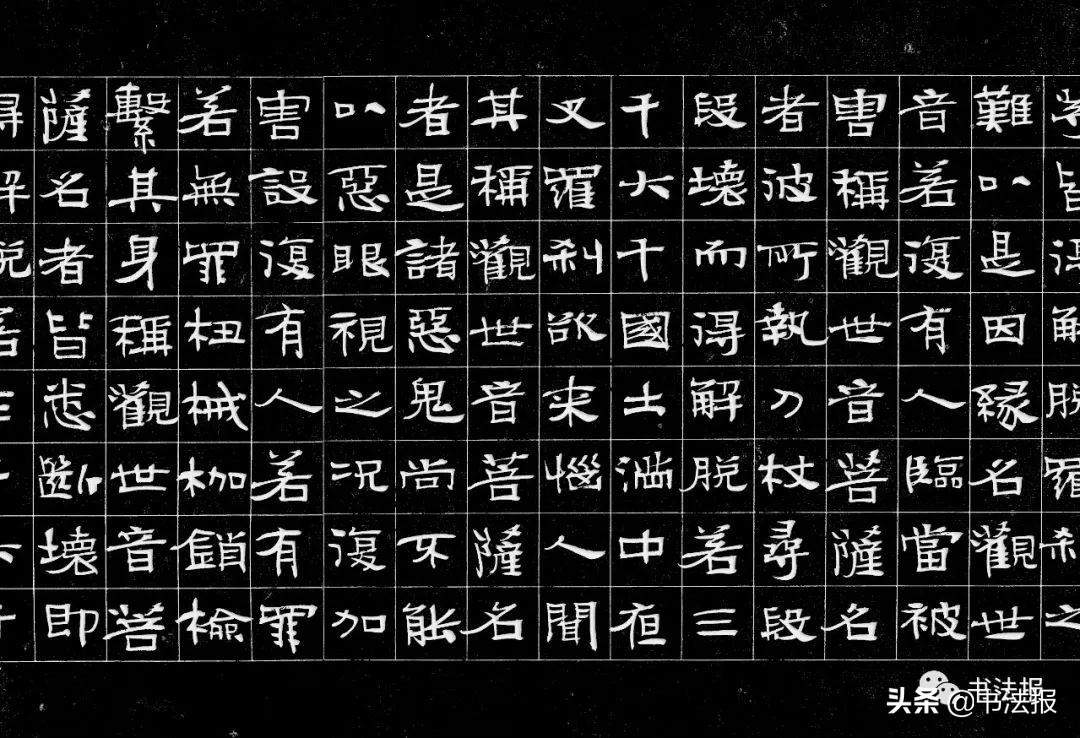 皆得解脫羅刹之
難以是因緣名觀世
音若復有人臨當被
害稱觀世音菩薩名
者彼所執刀杖尋段
段壞而得解脫若三
千大千國土滿中夜
叉羅刹欲来惱人聞
其稱觀世音菩薩名
者是諸惡鬼尚不能
以惡眼視之況復加
害設復有人若有罪
若無罪杻械枷鎖檢
繫其身稱觀世音菩
薩名者皆悉斷壞即
得解脫若三千大千
书法报
头条@书法报